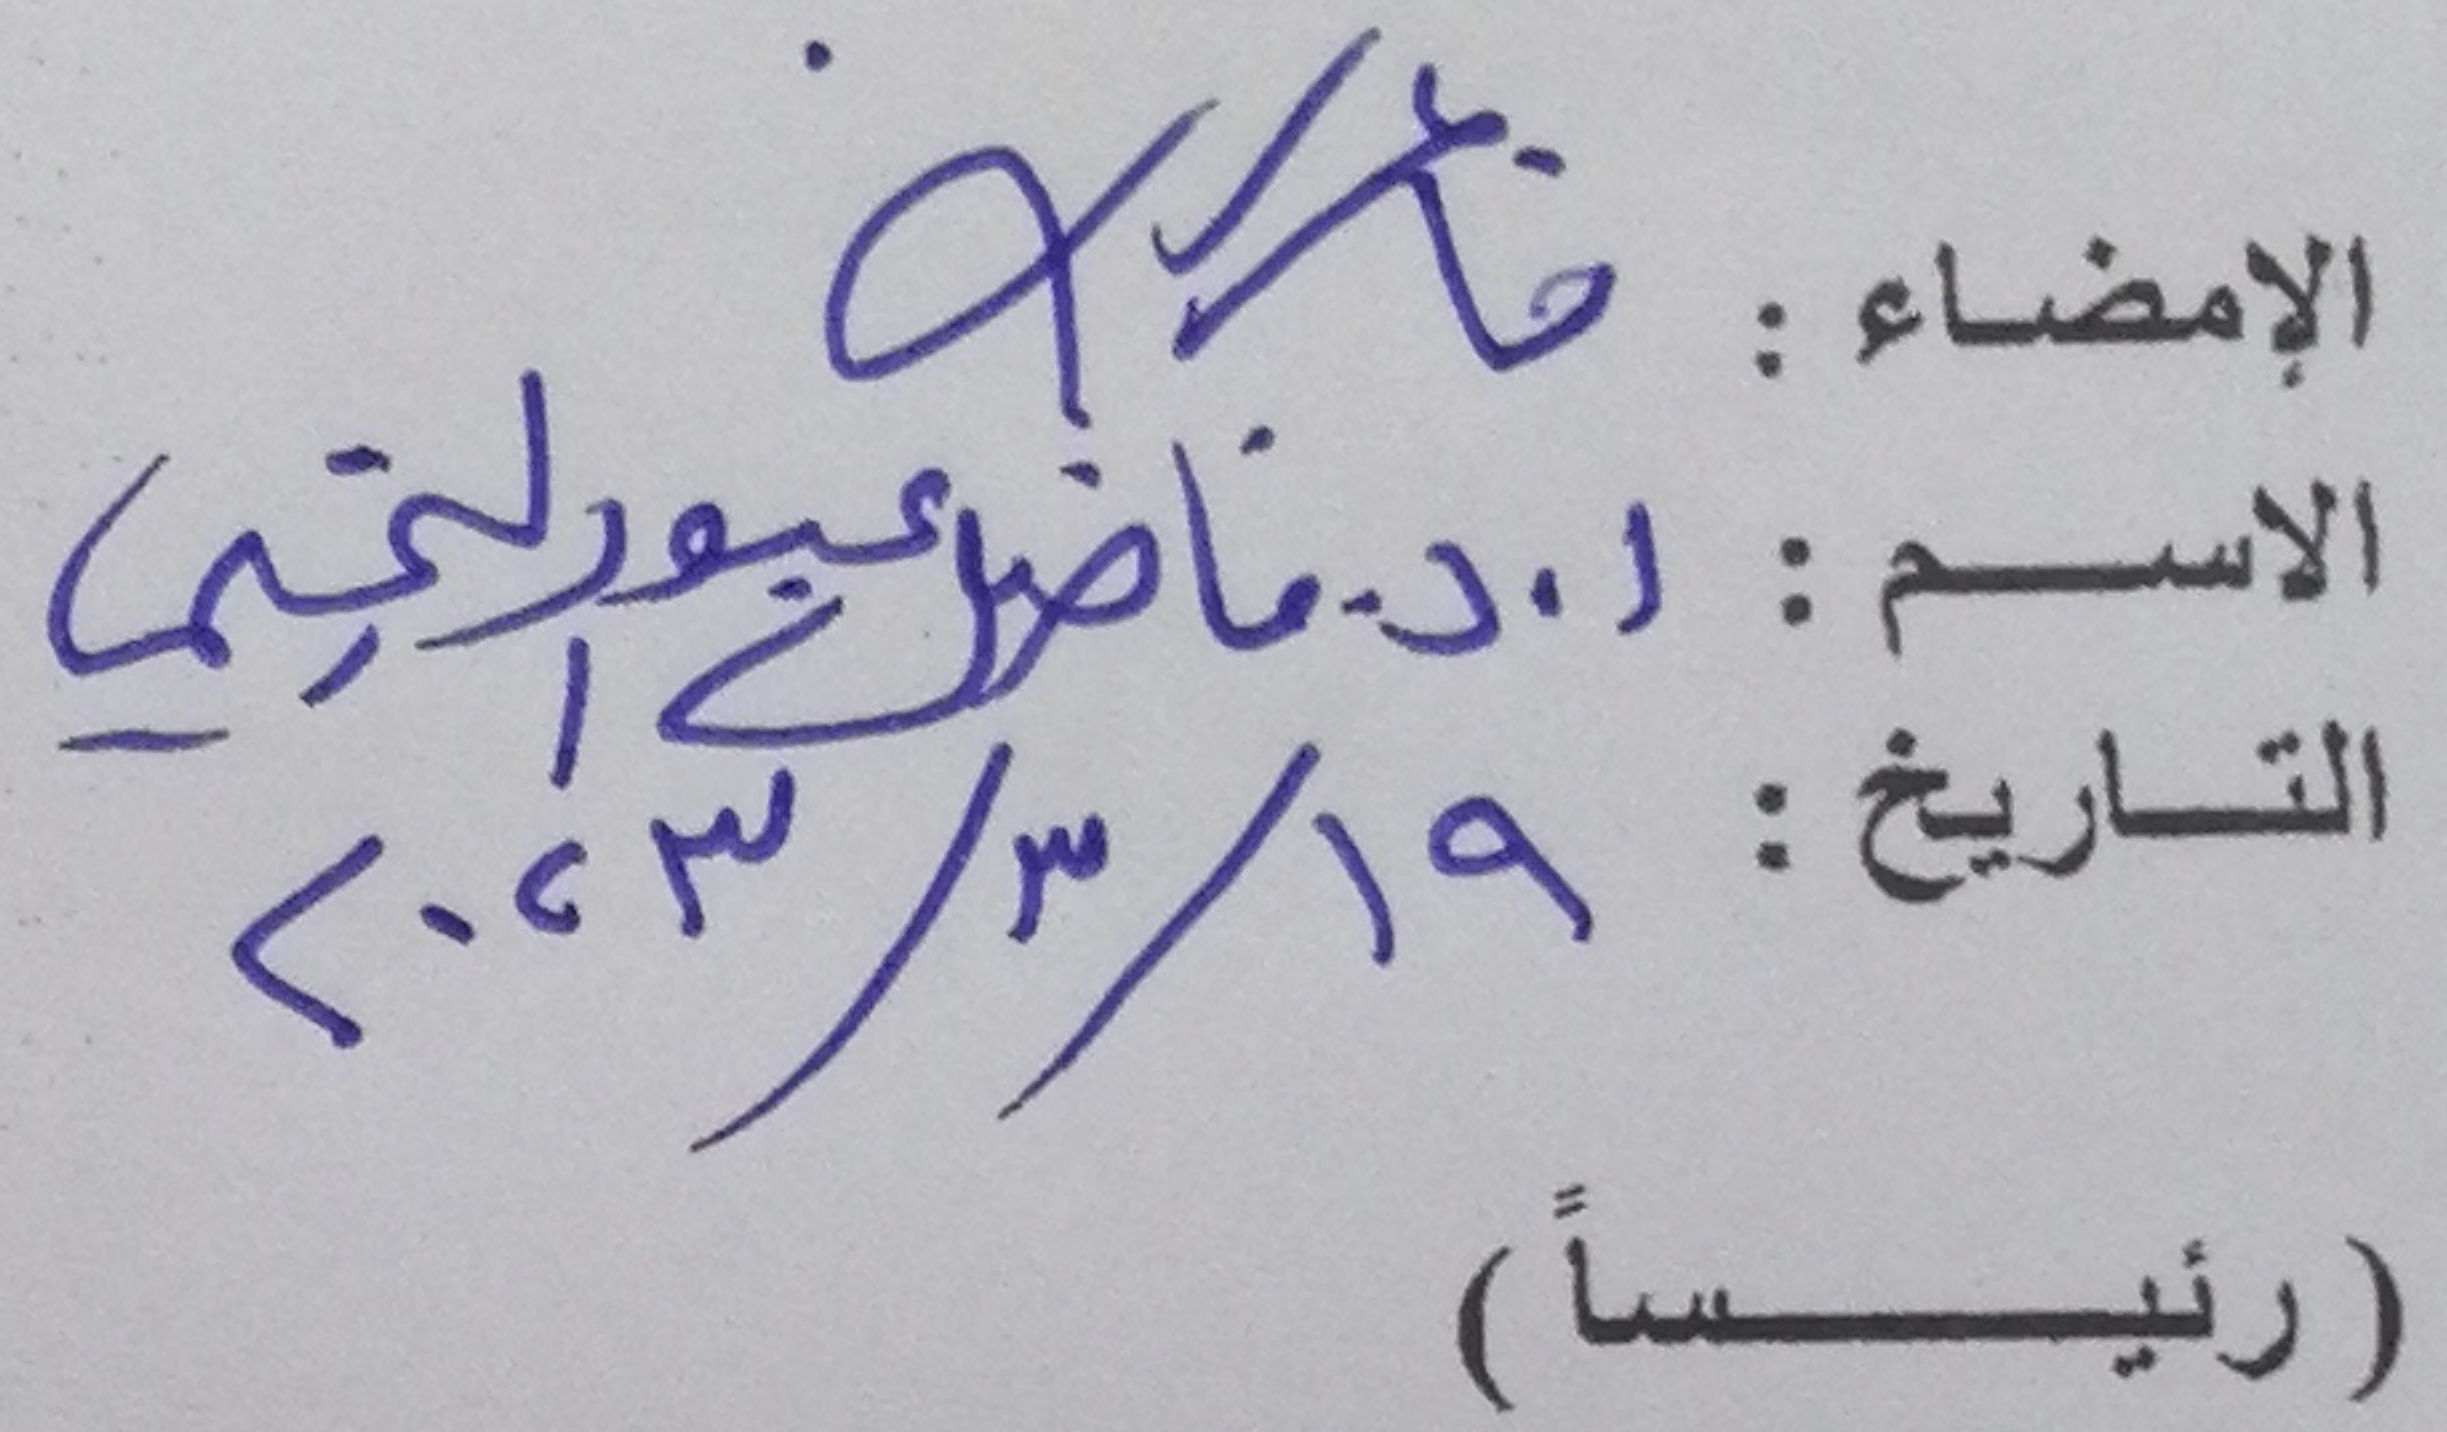 الإمضاء :
الاسم : ا . د . فاضل عبود التميمي
التاريخ : ١٩ / ٣ / ٢٠٢٣
(رئيساً)